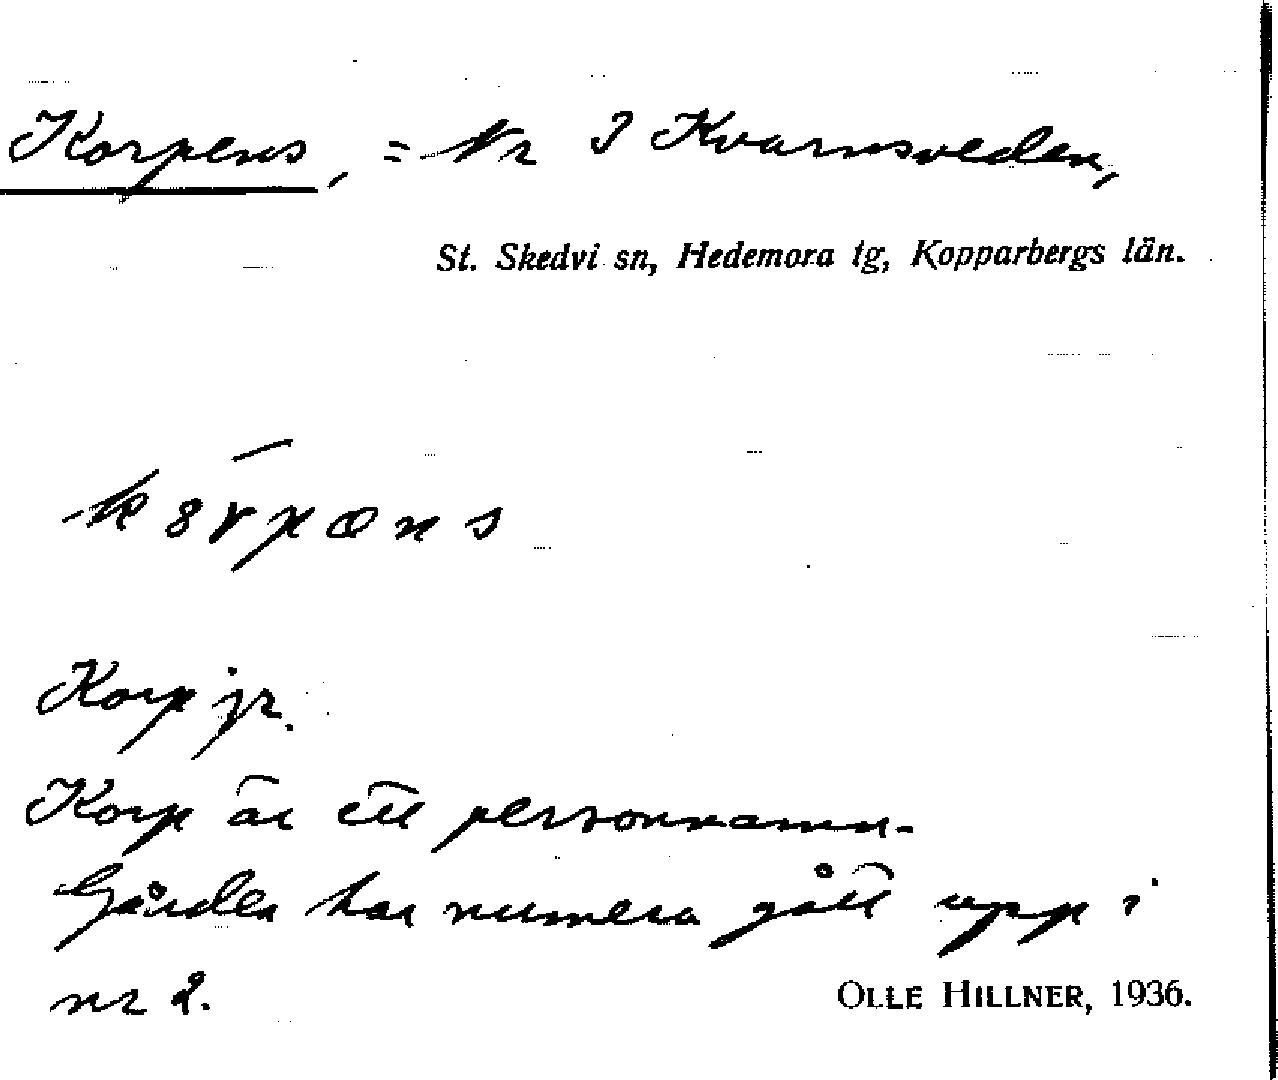 Korpens, = Nr 3 Kvarnsveden,
St. Skedvi sn, Hedemora tg, Kopparbergs län.
Korp jr.
Korp är ett personnamn.
Gården har numera gått upp i
nr 2.
OLLE HILLNER, 1936.